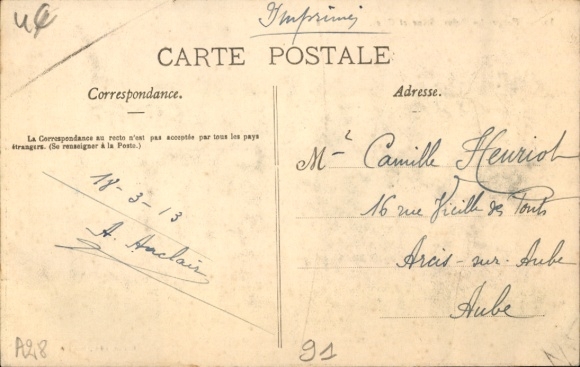 4€
Imprimés
CARTE POSTALE
Correspondance.
La Correspondance au recto n'est pas acceptée par tous les pays
étrangers. (Se renseigner à la Poste.)
18-3-13
A. Auclair
Adresse.
Camille Henriot
16 rue Vieille des Ponts
Arcis-sur-Aube
Aube
A28
91